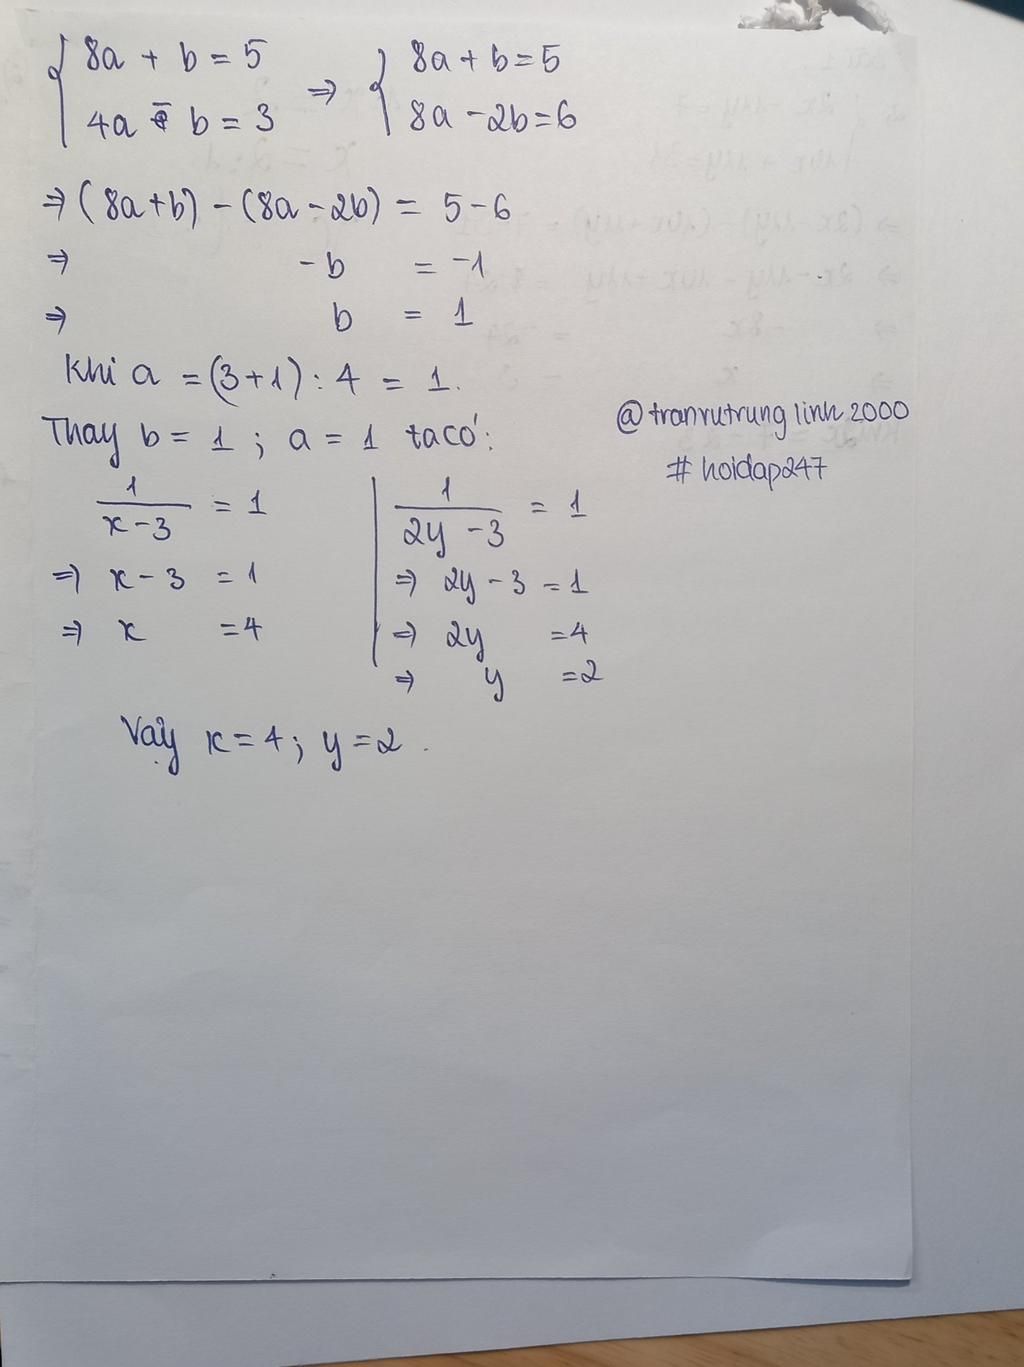 8a + b = 5 ⇒ 8a + b = 5
4a - b = 3 8a - 2b = 6
⇒ (8a+b) - (8a - 2b) = 5 - 6
⇒ -b = -1
⇒ b = 1
Khi a = (3+1) : 4 = 1.
Thay b = 1 ; a = 1 ta có:
@tranvutrunglinh2000
#hoidap247
1/(x-3) = 1
⇒ x - 3 = 1
⇒ x = 4
1/(2y-3) = 1
⇒ 2y - 3 = 1
⇒ 2y = 4
⇒ y = 2
Vậy x = 4 ; y = 2.